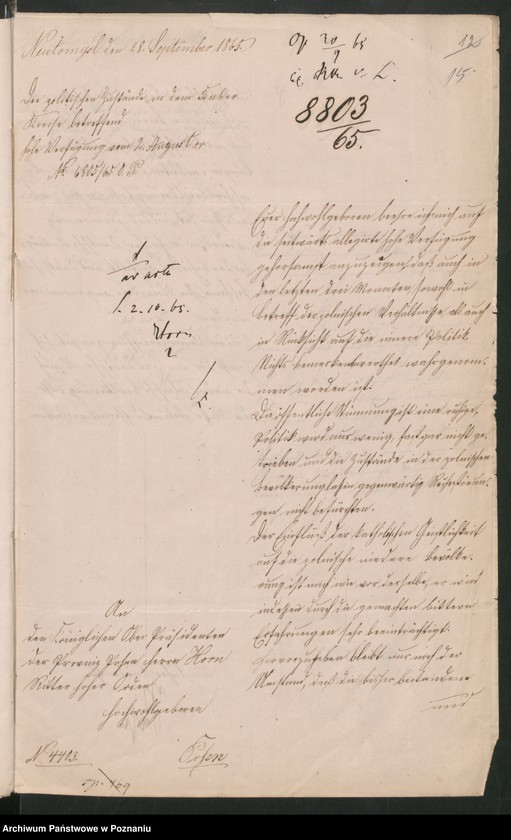 Neutomysl den 28. September 1865.
Die politischen Zustände in dem Buker
Kreise betreffend
hohe Verfügung vom 2. August cr
No 6805/65 O. P.
pr 30/9 65
8803
65.
125
115
Euer Hochwohlgeboren beehre ich mich auf
die seitwärts allegirte hohe Verfügung
gehorsamst anzuzeigen, daß auch in
den letzten drei Monaten, sowohl in
Betreff der polnischen Verhältnisse, als auch
in Rücksicht auf die innere Politik
Nichts bemerkenswerthes wahrgenom-
men worden ist.
Die öffentliche Stimmung ist eine ruhige,
Politik wird nur wenig, fast gar nicht ge-
trieben und die Zustände in der polnischen
Bevölkerung lassen gegenwärtig Ruhestörun-
gen nicht befürchten.
Der Einfluß der katholischen Geistlichkeit
auf die polnische niedere Bevölke-
rung ist nach wie vor derselbe, er wird
indessen durch die gemachten bittern
Erfahrungen sehr beeinträchtigt.
Hervorzuheben bleibt nur noch der
Umstand, daß die bisher bestandene
und
ad acta
P. 2. 10. 65.
Horn
An
den Königlichen Ober Präsidenten
der Provinz Posen Herrn Horn
Ritter hoher Orden
Hochwohlgeboren
Posen
No 4403.
Archiwum Państwowe w Poznaniu